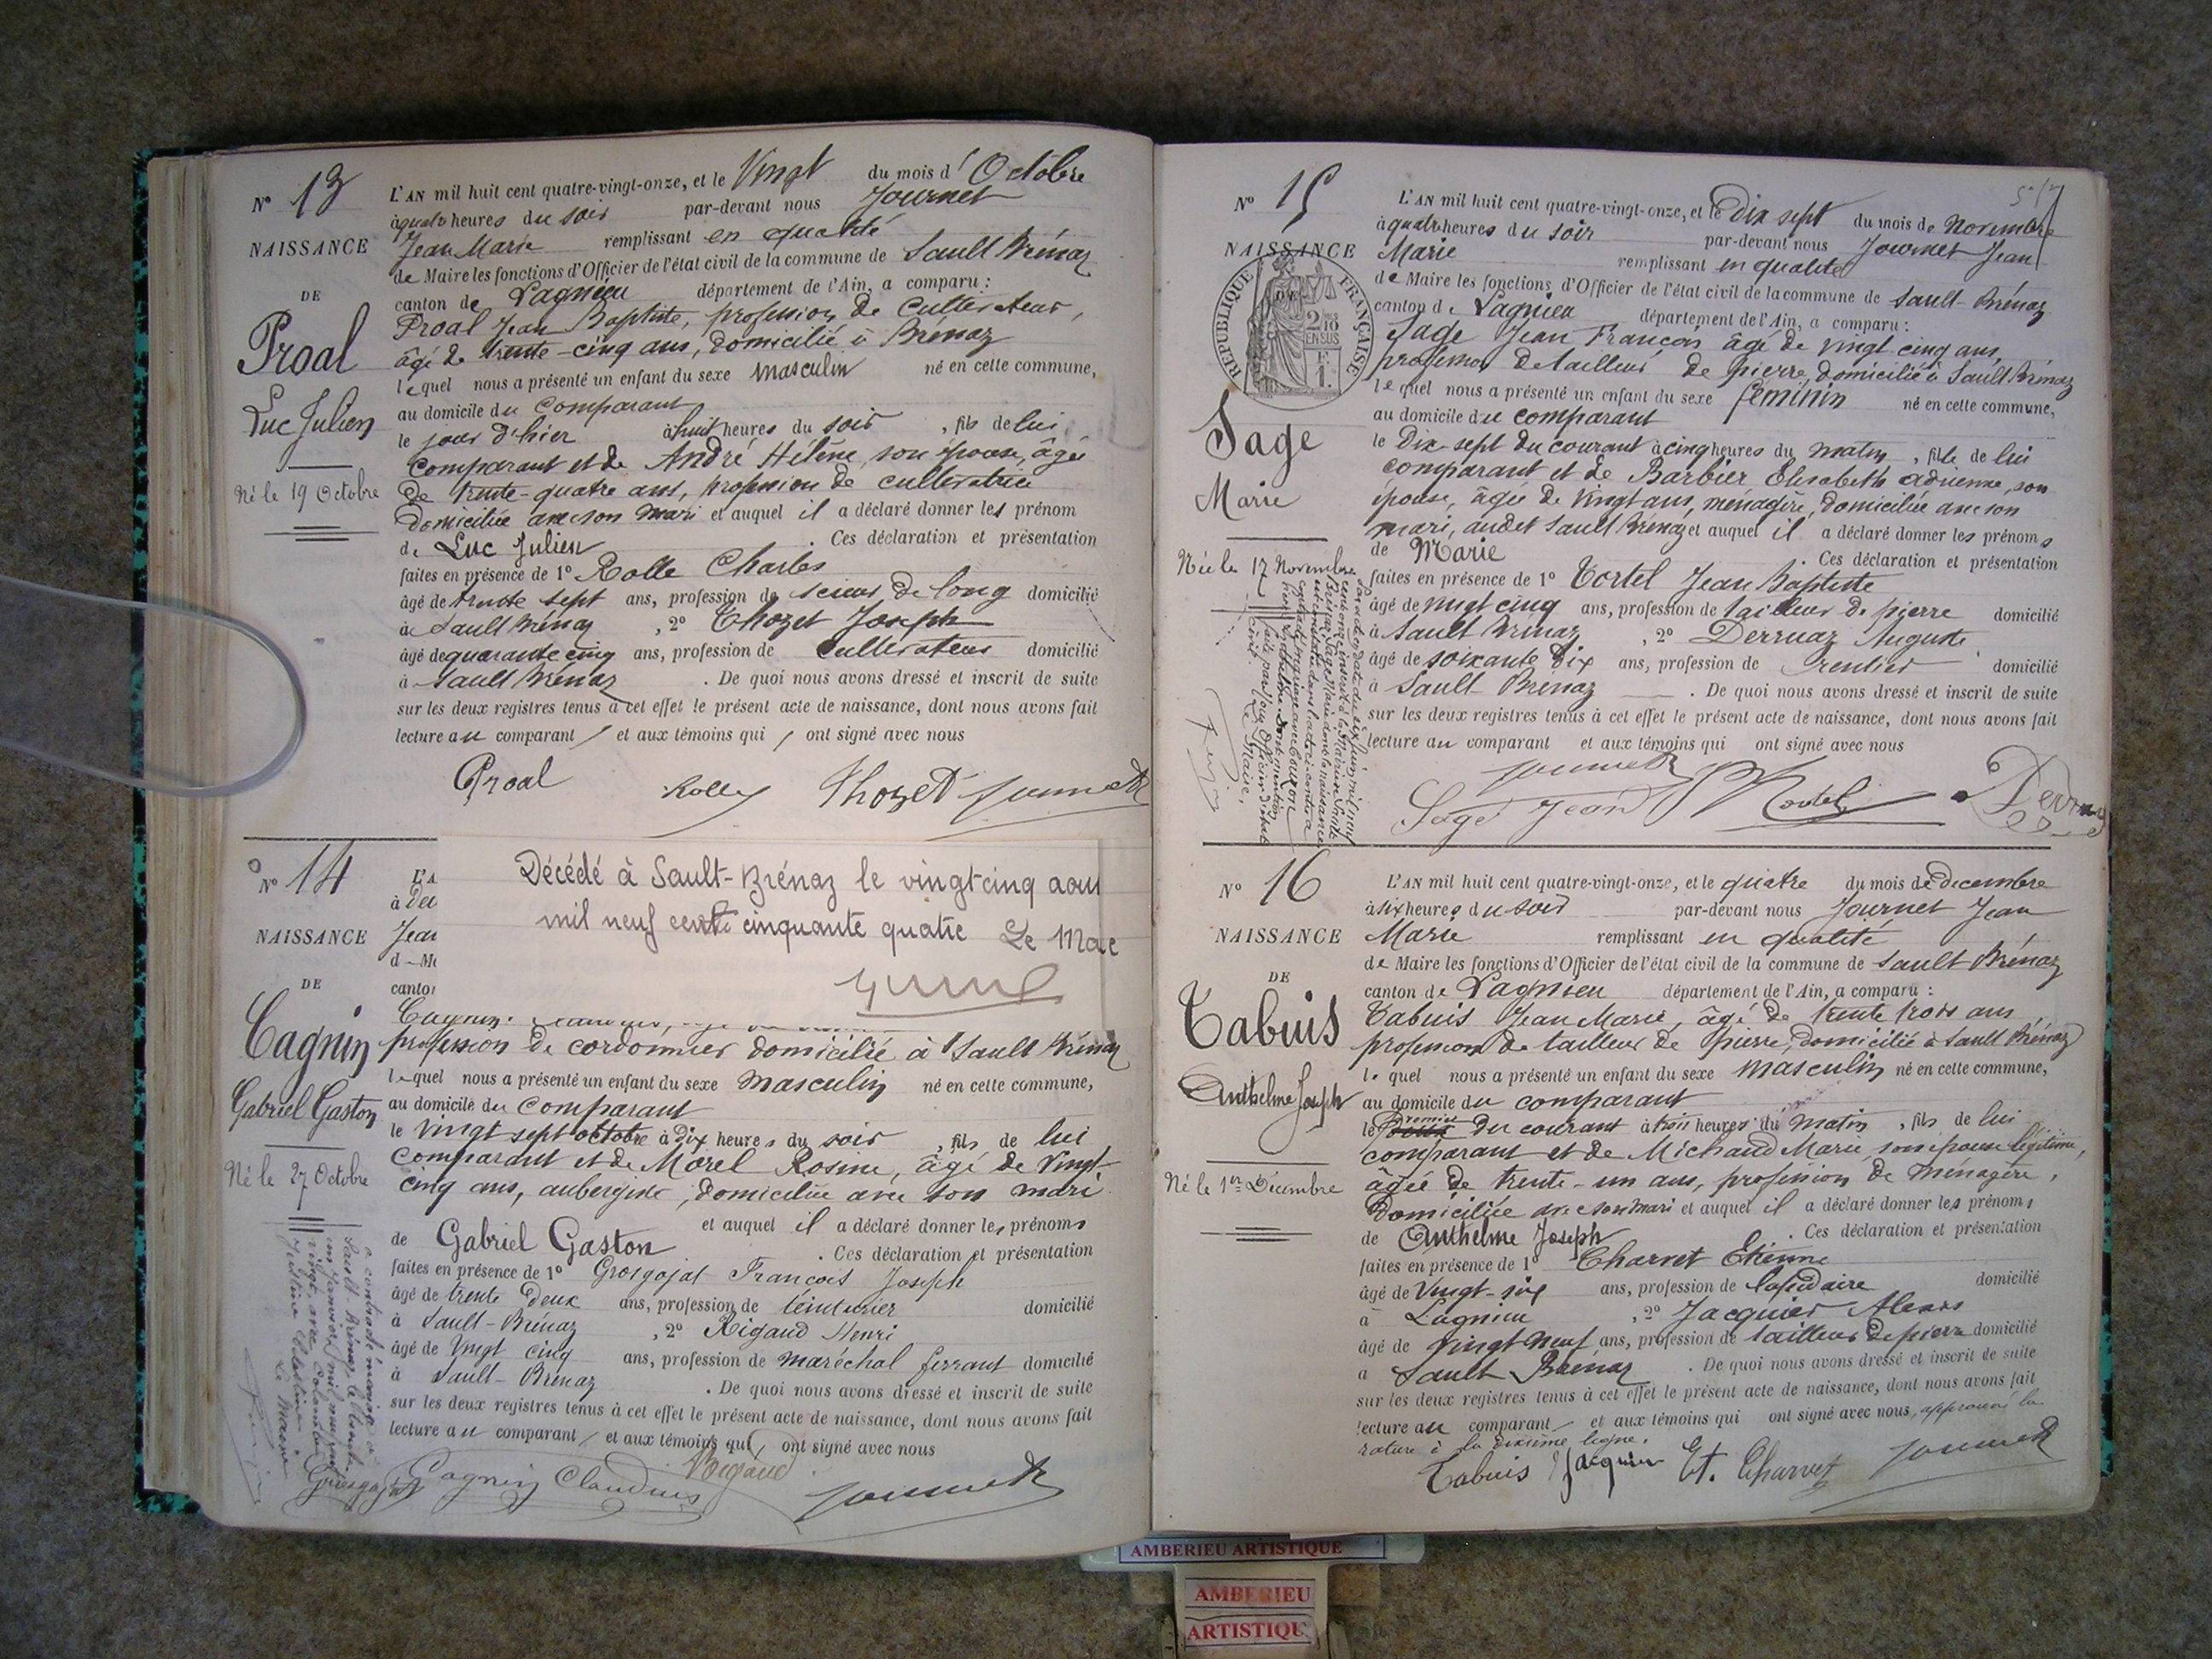 N° 13
NAISSANCE
DE
Proal
Luc Julien
Né le 19 Octobre
L'AN mil huit cent quatre-vingt-onze, et le Vingt du mois d'Octobre
à quatre heures du soir par-devant nous Journet
Jean Marie remplissant en qualité
de Maire les fonctions d'Officier de l'état civil de la commune de Sault Brénaz
canton de Lagnieu département de l'Ain, a comparu :
Proal Jean Baptiste, profession de Cultivateur,
âgé de trente-cinq ans, domicilié à Brénaz
lequel nous a présenté un enfant du sexe masculin né en cette commune,
au domicile du Comparant
le jour d'hier à huit heures du soir, fils de lui
Comparant et de André Hélène, son épouse, âgée
de trente-quatre ans, profession de cultivatrice
domiciliée avec son mari et auquel il a déclaré donner les prénom
de Luc Julien. Ces déclaration et présentation
faites en présence de 1° Rolle Charles
âgé de trente sept ans, profession de scieur de long domicilié
à Sault Brénaz, 2° Thozet Joseph
âgé de quarante cinq ans, profession de Cultivateur domicilié
à Sault Brénaz. De quoi nous avons dressé et inscrit de suite
sur les deux registres tenus à cet effet le présent acte de naissance, dont nous avons fait
lecture au comparant et aux témoins qui ont signé avec nous
Proal Rolle Thozet Journet
N° 14
NAISSANCE
DE
Cagnin
Gabriel Gaston
Né le 27 Octobre
a contracté mariage à
Sault Brénaz, le trente
un Janvier mil neuf cent
vingt, avec Colomb
Justine Célestine
Le Maire
Décédé à Sault-Brénaz le vingt cinq aou
mil neuf cent cinquante quatre Le Maire
L'A
à deu
Jean
d Ma
canton
Cagnin
profession de cordonnier domicilié à Sault Brénaz
lequel nous a présenté un enfant du sexe masculin né en cette commune,
au domicile du Comparant
le Vingt sept octobre à dix heures du soir, fils de lui
Comparant et de Morel Rosine, âgé de Vingt-
cinq ans, aubergiste, domiciliée avec son mari
et auquel il a déclaré donner les prénoms
de Gabriel Gaston. Ces déclaration et présentation
faites en présence de 1° Grosgojat François Joseph
âgé de trente deux ans, profession de teinturier domicilié
à Sault-Brénaz, 2° Rigaud Henri
âgé de Vingt cinq ans, profession de maréchal ferrant domicilié
à Sault-Brénaz. De quoi nous avons dressé et inscrit de suite
sur les deux registres tenus à cet effet le présent acte de naissance, dont nous avons fait
lecture au comparant et aux témoins qui ont signé avec nous
Grosgojat Cagnin Claudius Rigaud Journet
N° 15
NAISSANCE
DE
RÉPUBLIQUE FRANÇAISE
2/10 EN SUS
F. 1.
Sage
Marie
Née le 17 Novembre
L'AN mil huit cent quatre-vingt-onze, et le Dix sept du mois de Novembre
à quatre heures du soir par-devant nous Journet Jean
Marie remplissant en qualité
de Maire les fonctions d'Officier de l'état civil de la commune de Sault-Brénaz
canton de Lagnieu département de l'Ain, a comparu :
Sage Jean François âgé de vingt cinq ans,
profession de tailleur de pierre, domicilié à Sault Brénaz
lequel nous a présenté un enfant du sexe féminin né en cette commune,
au domicile du comparant
le Dix-sept du courant à cinq heures du matin, fille de lui
comparant et de Barbier Elisabeth adrienne, son
épouse, âgée de vingt ans, ménagère, domiciliée avec son
mari, audit Sault Brénaz et auquel il a déclaré donner les prénoms
de Marie. Ces déclaration et présentation
faites en présence de 1° Tortel Jean Baptiste
âgé de vingt cinq ans, profession de tailleur de pierre domicilié
à Sault Brénaz, 2° Derruaz Auguste
âgé de soixante dix ans, profession de rentier domicilié
à Sault-Brénaz. De quoi nous avons dressé et inscrit de suite
sur les deux registres tenus à cet effet le présent acte de naissance, dont nous avons fait
lecture au comparant et aux témoins qui ont signé avec nous
Journet
Sage Jean Tortel Derruaz
N° 16
NAISSANCE
DE
Tabuis
Anthelme Joseph
Né le 1er Décembre
L'AN mil huit cent quatre-vingt-onze, et le quatre du mois de decembre
à six heures du soir par-devant nous Journet Jean
Marie remplissant en qualité
de Maire les fonctions d'Officier de l'état civil de la commune de Sault Brénaz
canton de Lagnieu département de l'Ain, a comparu :
Tabuis Jean Marie, âgé de trente trois ans,
profession de tailleur de pierre, domicilié à Sault Brénaz
lequel nous a présenté un enfant du sexe masculin né en cette commune,
au domicile du comparant
le premier du courant à trois heures du matin, fils de lui
comparant et de Michaud Marie, son épouse légitime,
âgée de trente-un ans, profession de ménagère,
domiciliée avec son mari et auquel il a déclaré donner les prénoms
de Anthelme Joseph. Ces déclaration et présentation
faites en présence de 1° Charvet Etienne
âgé de Vingt-six ans, profession de lapidaire domicilié
à Lagnieu, 2° Jacquier Alexis
âgé de vingt neuf ans, profession de tailleur de pierre domicilié
à Sault Brénaz. De quoi nous avons dressé et inscrit de suite
sur les deux registres tenus à cet effet le présent acte de naissance, dont nous avons fait
lecture au comparant et aux témoins qui ont signé avec nous, approuvé la
rature à la dixième ligne.
Tabuis Jacquier Et. Charvet Journet
AMBERIEU ARTISTIQUE
AMBERIEU
ARTISTIQU